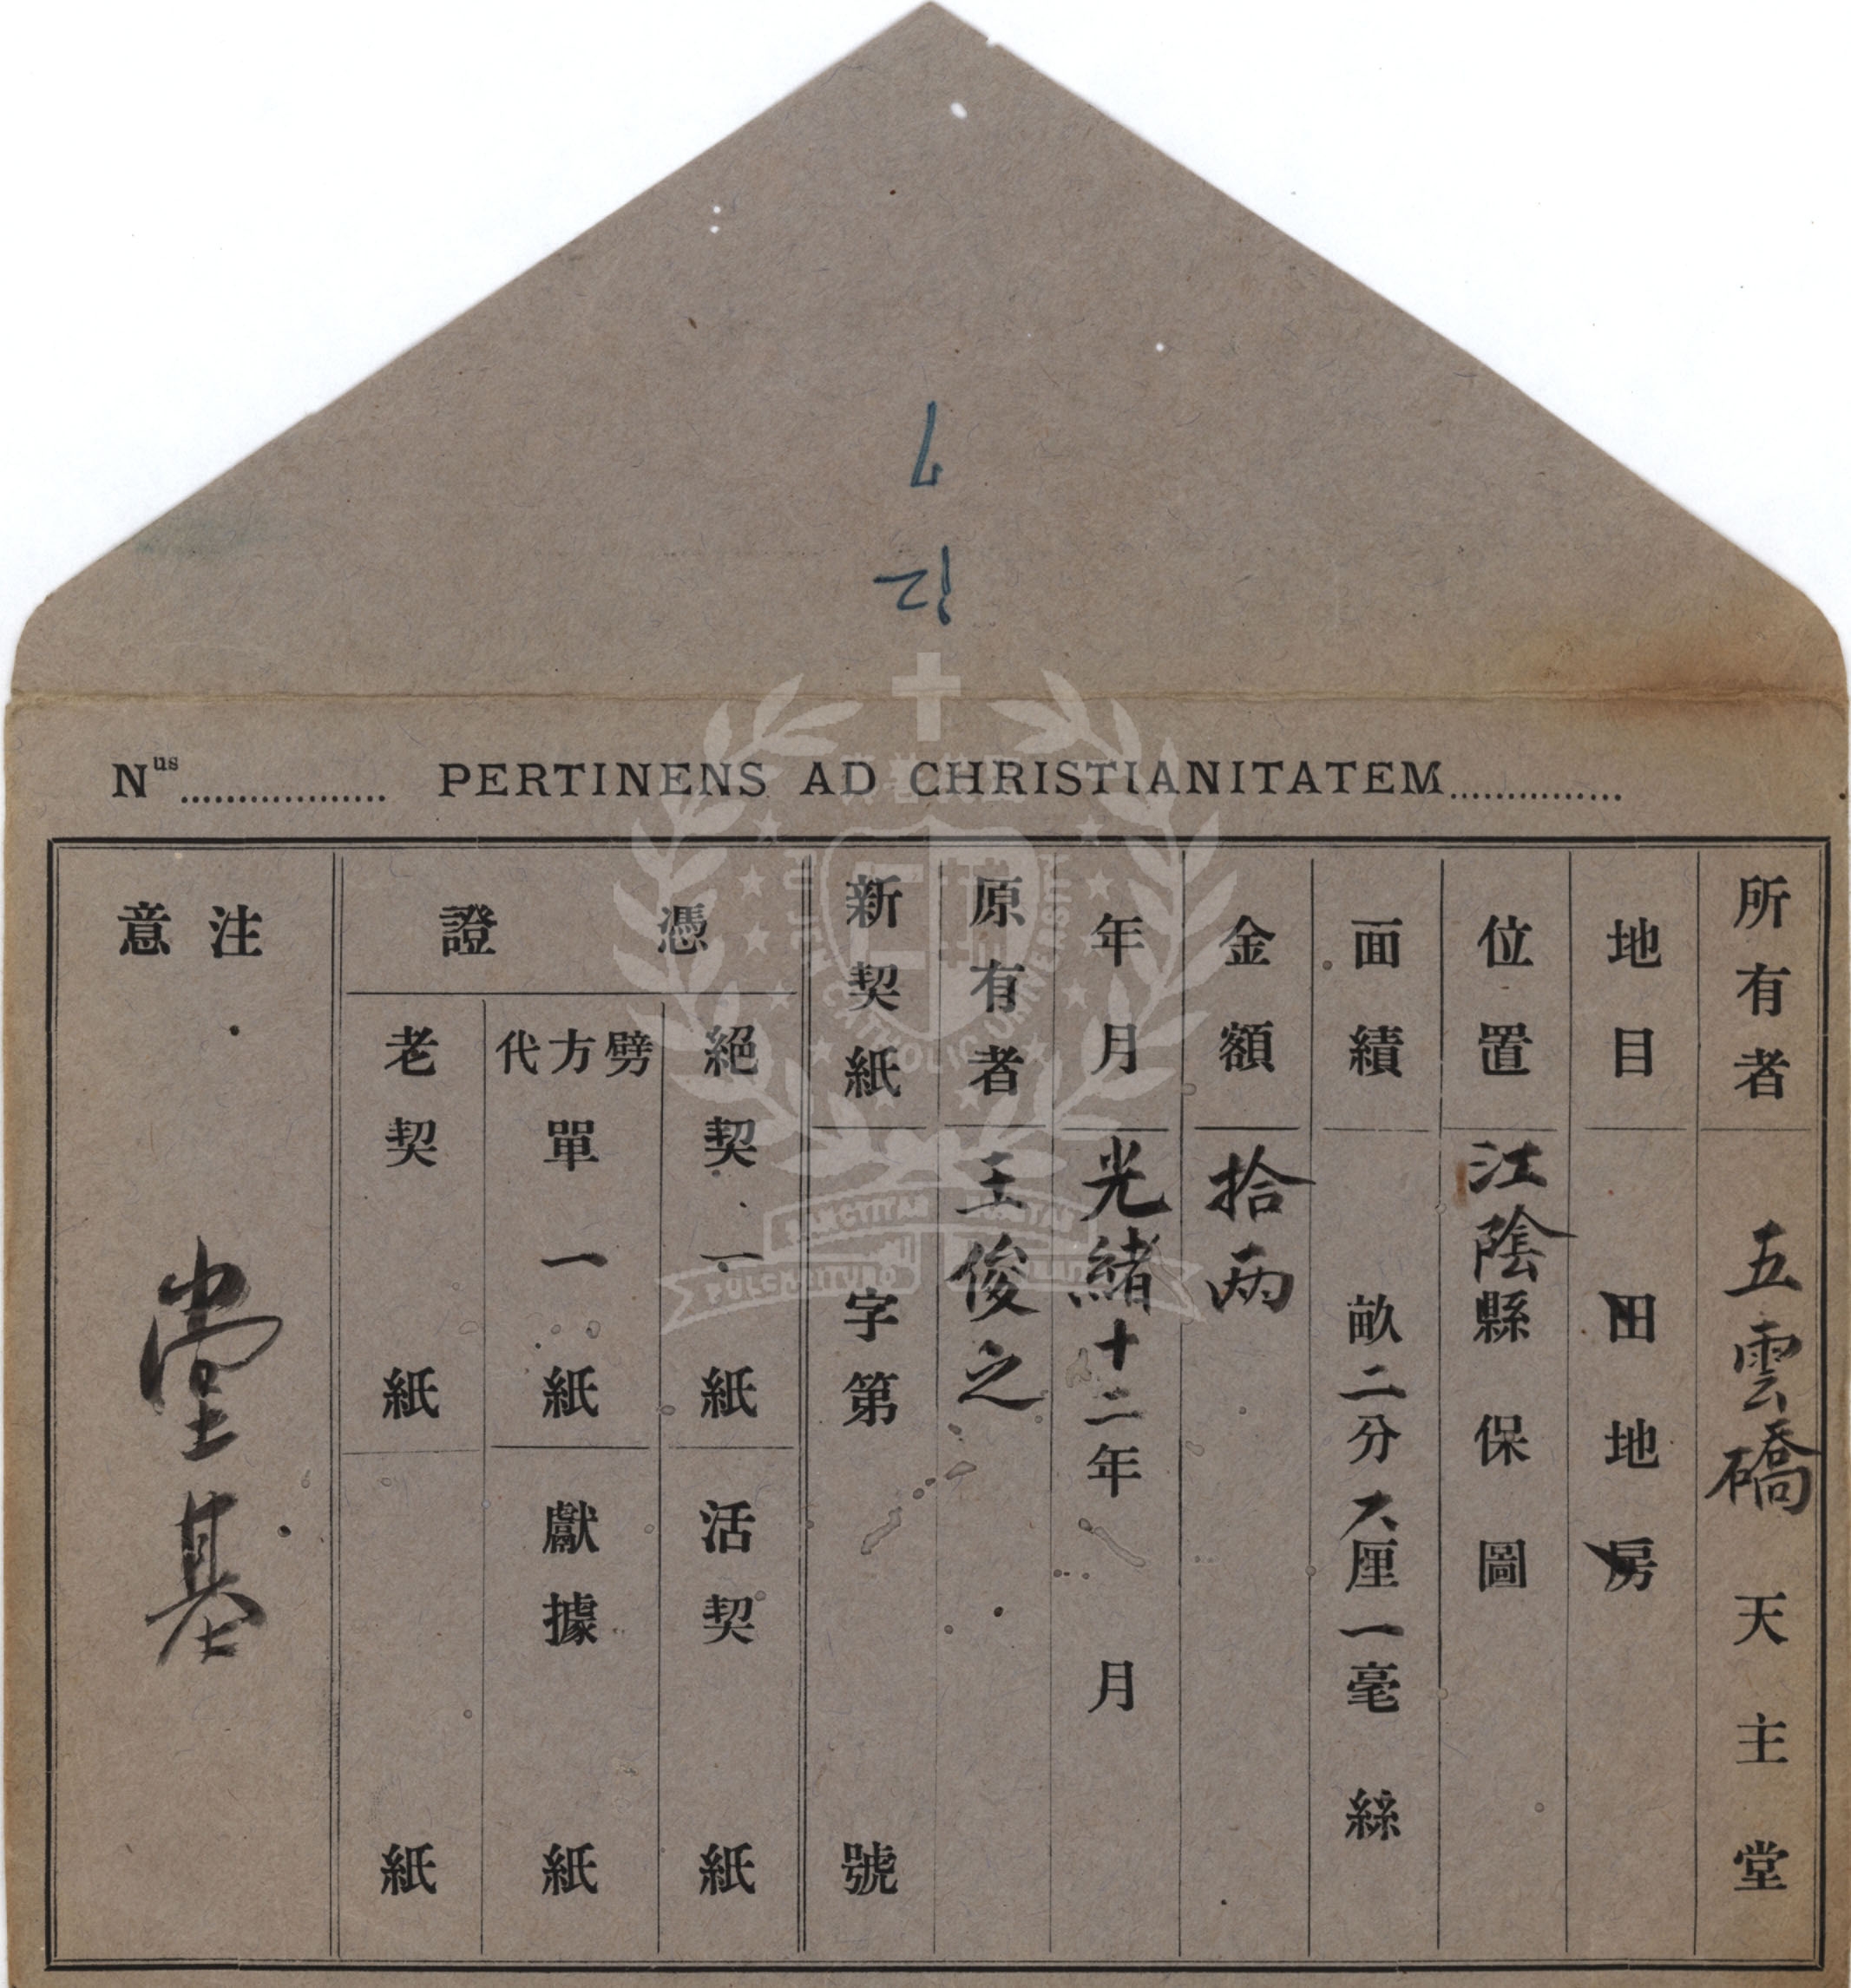 Nus.................. PERTINENS AD CHRISTIANITATEM...............
所有者 五雲礄天主堂
地目 田地房
位置 江陰縣保圖
面績 畝二分六厘一毫絲
金額 拾兩
年月 光緒十二年月
原有者 王俊之
新契紙 字第號
憑證
絕契一紙 活契紙
劈方代單一紙 獻據紙
老契紙 紙
注意 堂基